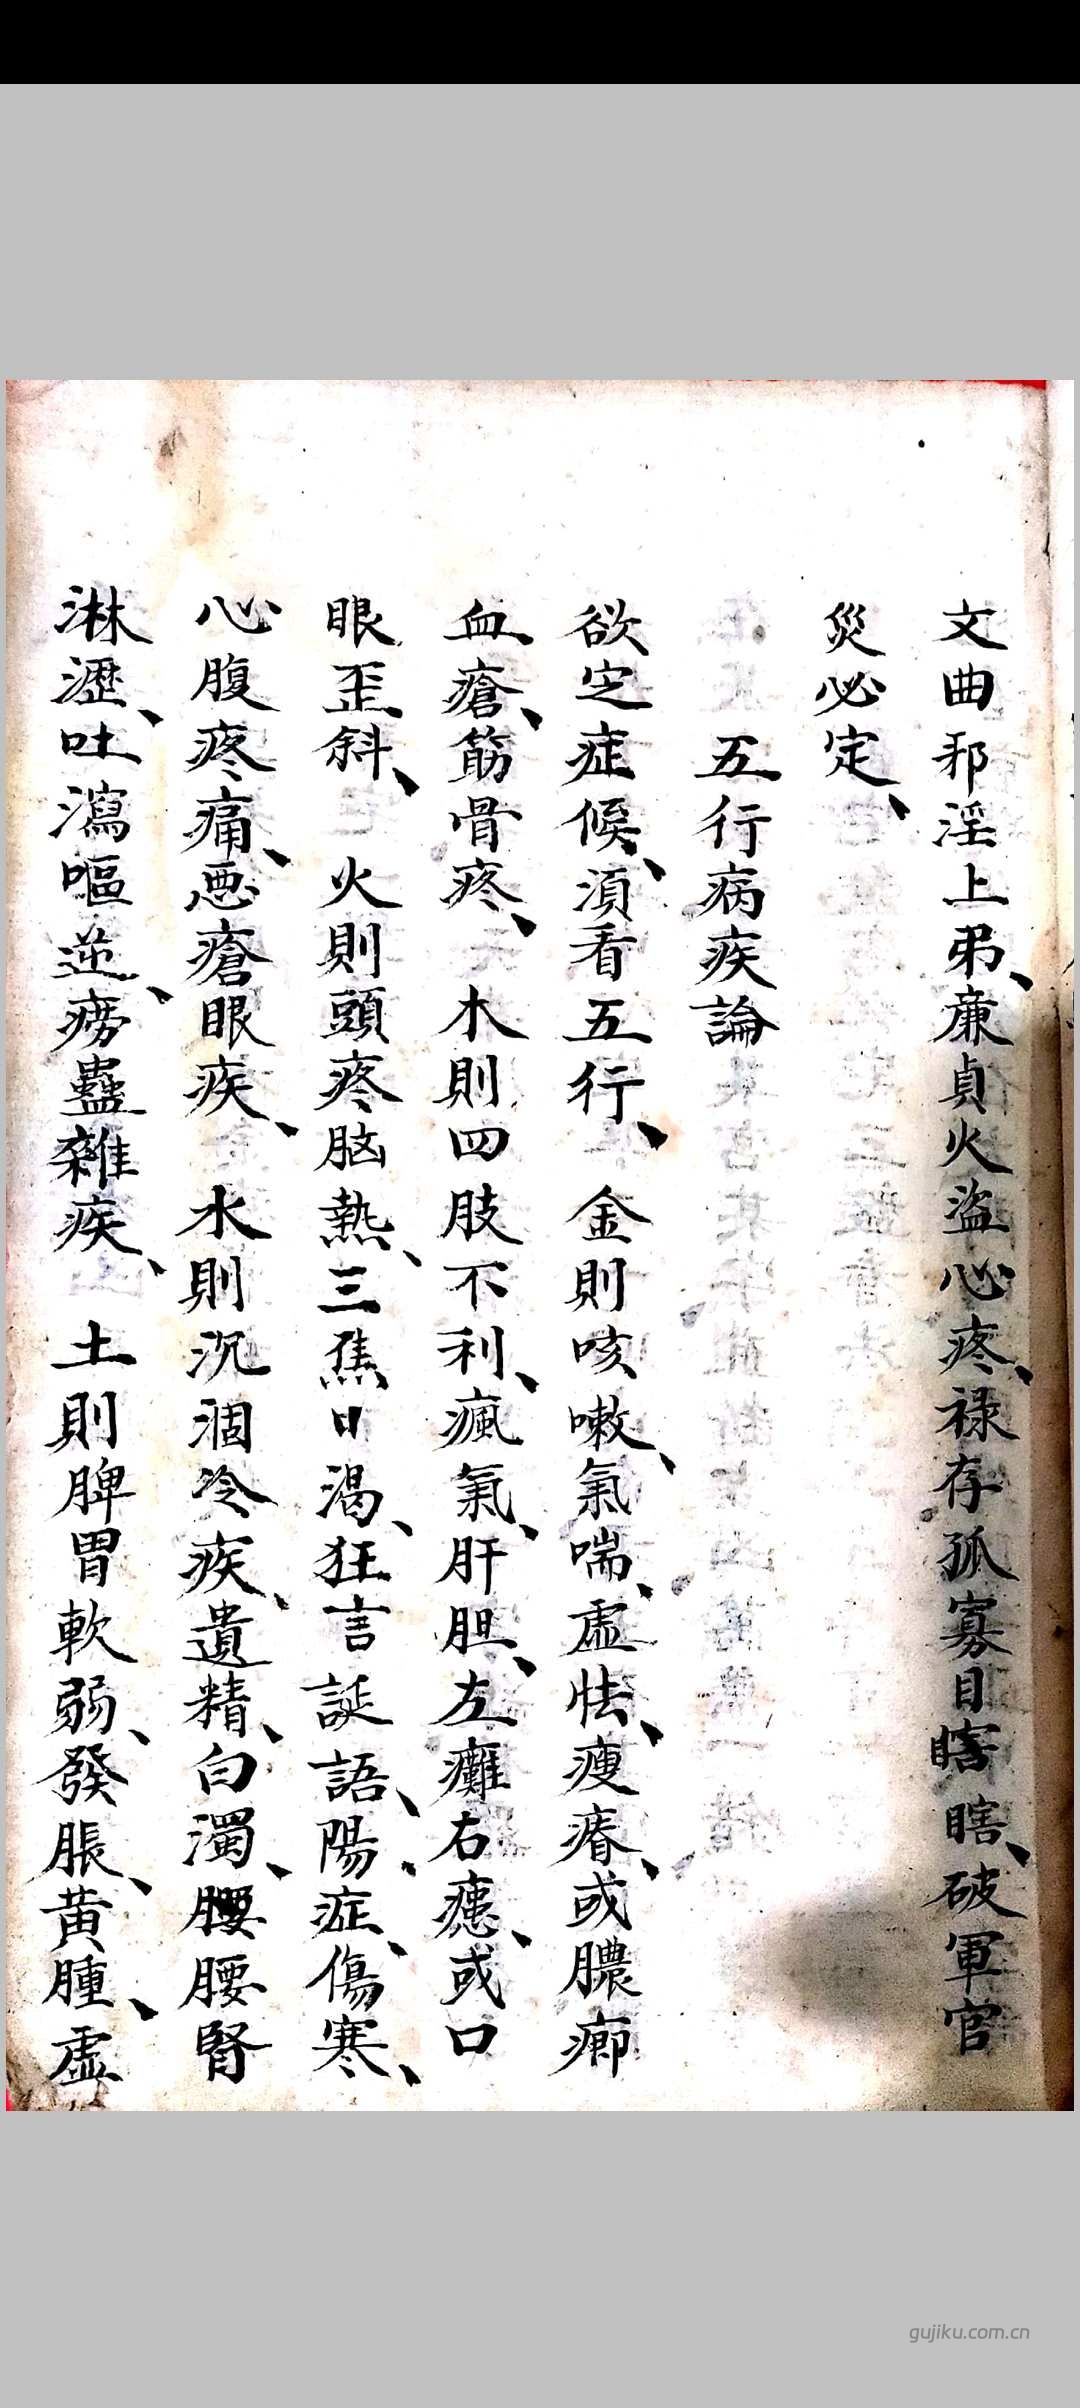 文曲邪淫上弔、廉貞火盜心疼、禄存孤寡目瞎瞎、破軍官
災必定、
五行病疾論
欲定症候、須看五行、金則咳嗽、氣喘、虛怯、瘦瘠、或膿
血瘡、筋骨疼、木則四肢不利、瘋氣、肝胆、左癱右、或口
眼歪斜、火則頭疼脑熱、三焦口渴、狂言誕語、陽症、傷寒、
心腹疼痛、惡瘡眼疾、水則沉涸冷疾、遺精、白濁、腰腰腎
淋瀝、吐瀉嘔逆、痨蠱雜疾、土則脾胃軟弱、發脹、黃腫、虛
gujiku.com.cn